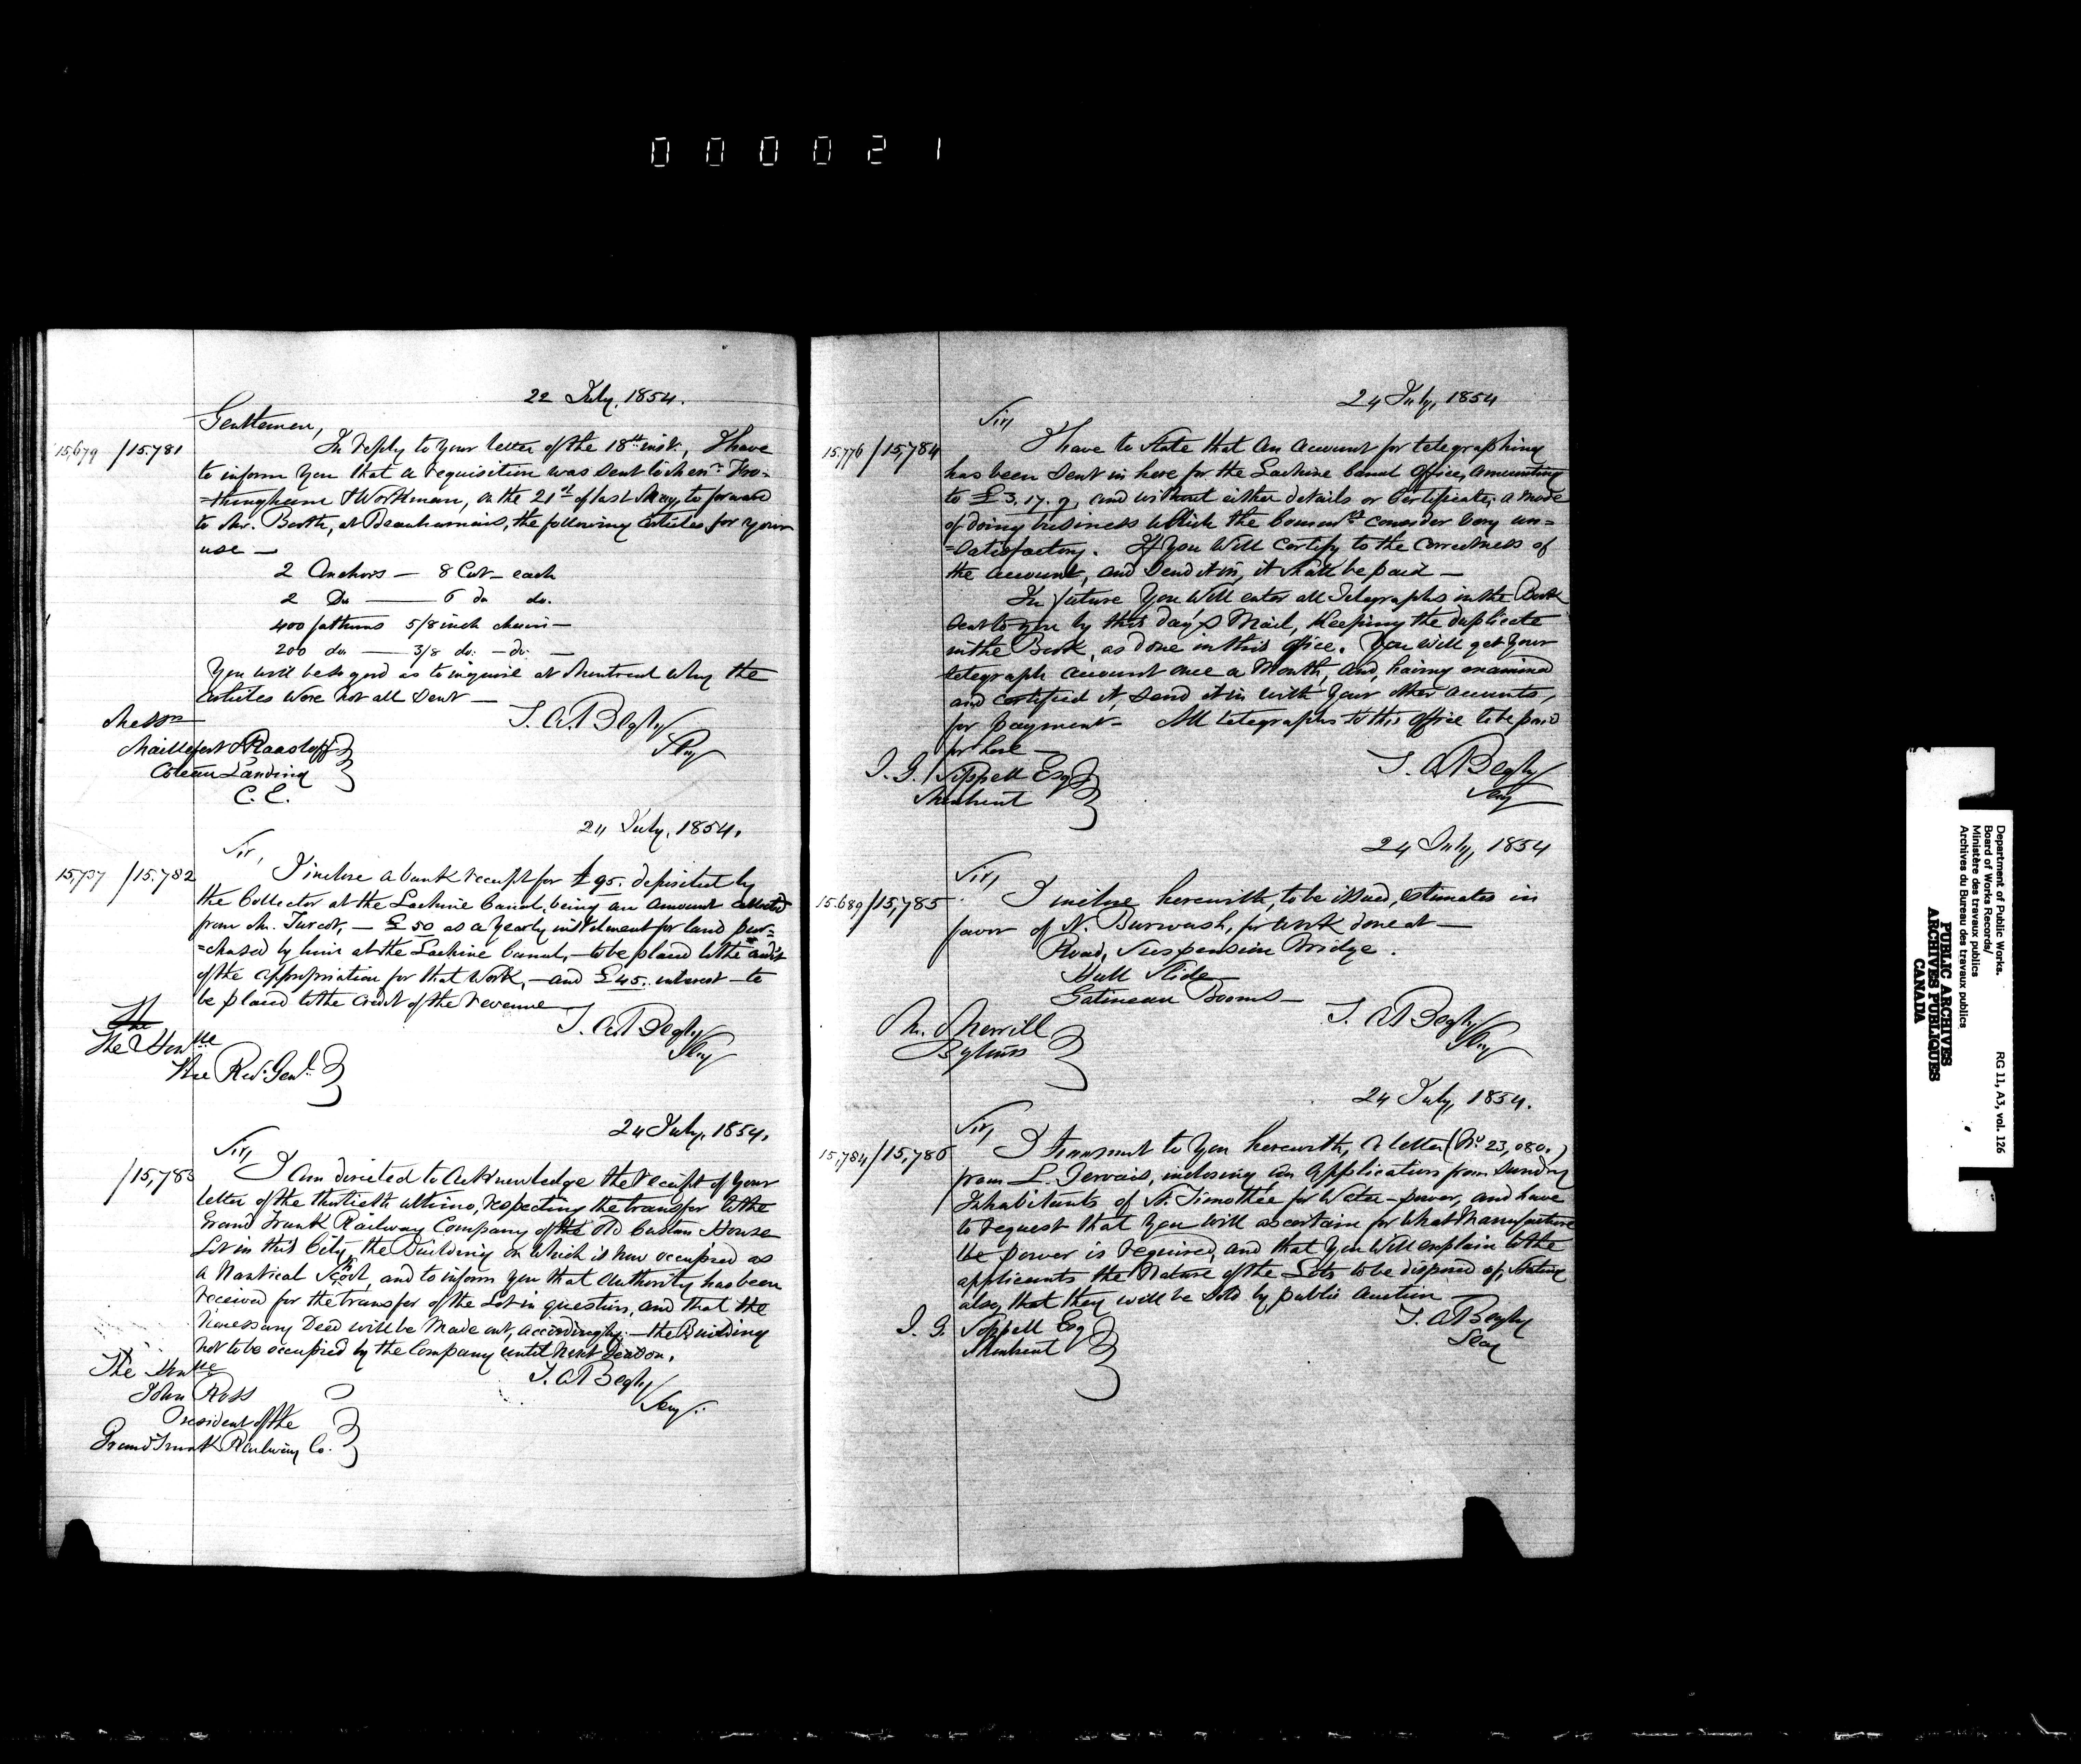 000021
22 July, 1854.
Gentlemen,
15,679 / 15.781
In reply to your letter of the 18th inst., I have
to inform you that a requisition was sent to Fro=
=thingham & Workman, on the 21st of last May, to forward
to Mr. Booth, at Beauharnois, the following articles for your
use —
2 Anchors — 8 Cwt — each
2 Do — 6 do do.
400 fathoms 5/8 inch chain —
200 do — 3/8 do: — do: —
You will be so good as to inquire at Montreal why the
articles were not all sent —
T. A. Begly
Secy
Messrs
Maillefert & Raasloff
Coteau Landing
C. E.
24 July, 1854.
Sir,
15,737 / 15.782
I inclose a bank receipt for £95. deposited by
the Collector at the Lachine Canal, being an amount collected
from Mr. Turcot, — £50 as a yearly instalment for land pur=
=chased by him at the Lachine Canal, — to be placed to the credit
of the appropriation for that work, — and £45. interest — to
be placed to the credit of the revenue
T. A. Begly
Secy
The
The Honble
The Recr. Genl.
24 July, 1854.
Sir,
/ 15,783
I am directed to acknowledge the receipt of your
letter of the thirtieth ultimo, respecting the transfer to the
Grand Trunk Railway Company of the Old Custom House
Lot in this City, the Building on which is now occupied as
a Nautical School, and to inform you that authority has been
received for the transfer of the Lot in question, and that the
necessary Deed will be made out, accordingly: — the Building
not to be occupied by the Company until next Season.
T. A. Begly
Secy.
The Honble
John Ross
President of the
Grand Trunk Railway Co.
24 July, 1854
Sir,
15,776 / 15,784
I have to state that an account for telegraphing
has been sent in here for the Lachine Canal Office, amounting
to £3.17.9, and without either details or Certificate; a mode
of doing business which the Commrs. consider very un=
=satisfactory. If you will certify to the correctness of
the account, and send it in, it shall be paid —
In future you will enter all Telegraphs in the Book
sent to you by this day's Mail, keeping the duplicate
in the Book, as done in this office. You will get your
telegraph account once a Month, and, having examined
and certified it, send it in with your other accounts,
for payment — All telegraphs to this office to be paid
for here —
T. A. Begly
Secy
J. G. Sippell Esq
Montreal
24 July, 1854
Sir,
15.689 / 15,785
I inclose herewith, to be issued, estimates in
favor of N. Burwash, for work done at —
Road, Suspension Bridge.
Hull Slide
Gatineau Booms —
T. A. Begly
Secy
Mr. Merrill
Bytown
24 July, 1854.
Sir,
15,784 / 15,786
I transmit to you herewith, a letter (No. 23,080.)
from L. Gervais, inclosing an application from sundry
Inhabitants of St. Timothée for Water-power, and have
to request that you will ascertain for what Manufacture
the power is required, and that you will explain to the
applicants the Nature of the Lots to be disposed of, stating
also, that they will be sold by public auction —
T. A. Begly
Secy
J. G. Sippell Esq
Montreal
Department of Public Works.
Board of Works Records/
Ministère des travaux publics
Archives du Bureau des travaux publics
RG 11, A3, vol. 126
PUBLIC ARCHIVES
ARCHIVES PUBLIQUES
CANADA